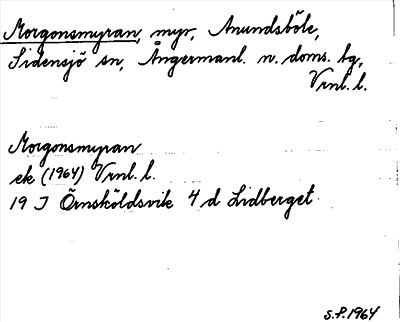 Morgonsmyran, myr, Anundsböle,
Sidensjö sn, Ångermanl. n. doms. bg,
Vrnl. l.
Morgonsmyran
ek (1964) Vrnl. l.
19 J Örnsköldsvik 4 d Lidberget
S.P. 1964